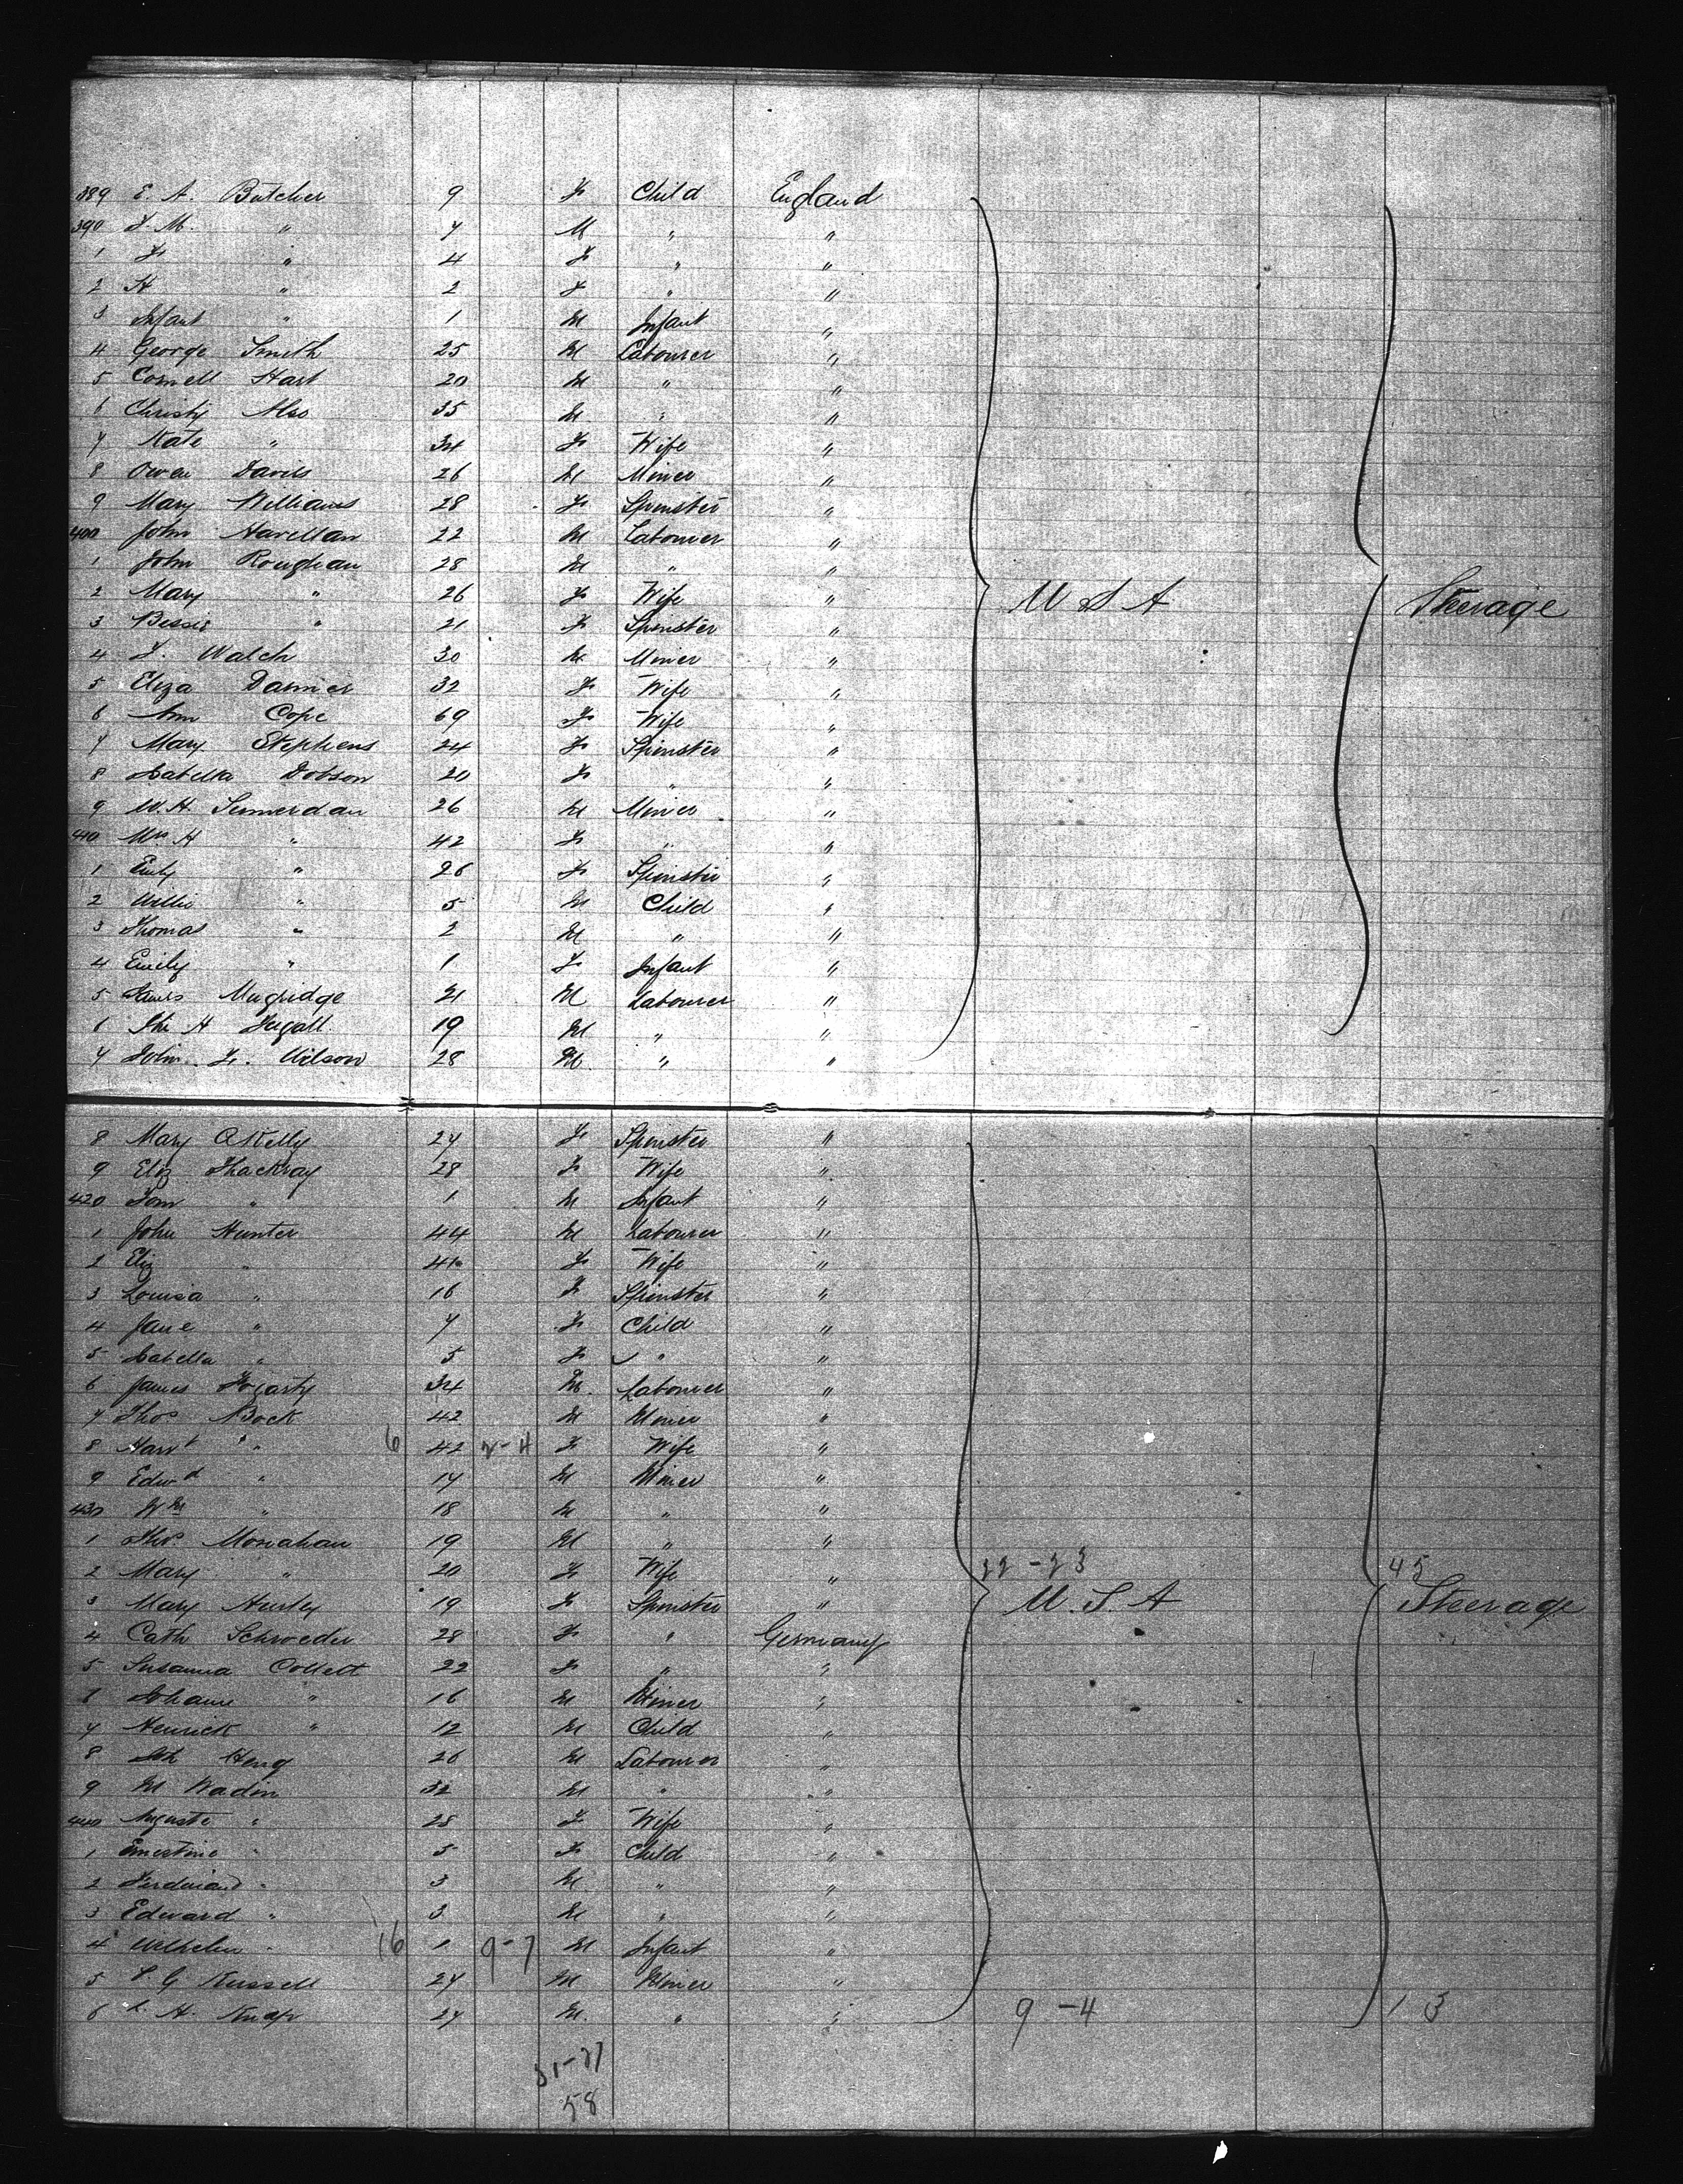 389 E. A. Butcher 9 F Child England
390 F. M. " 7 M " "
1 F " 4 F " "
2 H " 2 F " "
3 Infant " 1 M Infant "
4 George Smith 25 M Labourer "
5 Cornell Hart 20 M " "
6 Christy Also 35 M " "
7 Kate " 34 F Wife "
8 Owen Davis 26 M Miner "
9 Mary Williams 28 F Spinster "
400 John Havellan 22 M Labourer "
1 John Roughan 28 M " "
2 Mary " 26 F Wife " U S A Steerage
3 Bessie " 21 F Spinster "
4 J. Walch 30 M Miner "
5 Eliza Darmer 32 F Wife "
6 Ann Cope 69 F Wife "
7 Mary Stephens 24 F Spinster "
8 Isabella Dobson 20 F " "
9 W. H. Summerdan 26 M Miner "
410 Mrs H " 42 F " "
1 Emly " 26 F Spinster "
2 Willie " 5 M Child "
3 Thomas " 2 M " "
4 Emily " 1 F Infant "
5 James Mugridge 21 M Labourer "
6 H 19 M " "
7 John. F. Wilson 28 M " "
8 Mary OKelly 27 F Spinster "
9 Eliz Thackray 28 F Wife "
420 Tom " 1 M Infant "
1 John Hunter 44 M Labourer "
2 Eliz " 40 F Wife "
3 Louisa " 16 F Spinster "
4 Jane " 7 F Child "
5 Isabella " 5 F " "
6 James Fogarty 34 M Labourer "
7 Thos Bock 42 M Miner "
8 Mart " 6 42 2-4 F Wife "
9 Edwd " 17 M Miner "
430 Wm " 18 M " "
1 Thos Monahan 19 M " "
2 Mary " 20 F Wife " 22-23 45
3 Mary Hurley 19 F Spinster " U. S. A Steerage
4 Cath Schroeder 28 F " Germany
5 Susanna Collett 22 F " "
6 Johann " 16 M Miner "
7 Henrick " 12 M Child "
8 Joh Heng 26 M Labourer "
9 M Wadin 32 M " "
440 Auguste " 28 F Wife "
1 Ernestine " 5 F Child "
2 Ferdinand " 3 M " "
3 Edward " 3 M " "
4 Wilhelm " 16 1 9-7 M Infant "
5 G Russell 27 M Miner "
6 H. Knap 27 M " " 9-4 13
31-27
58